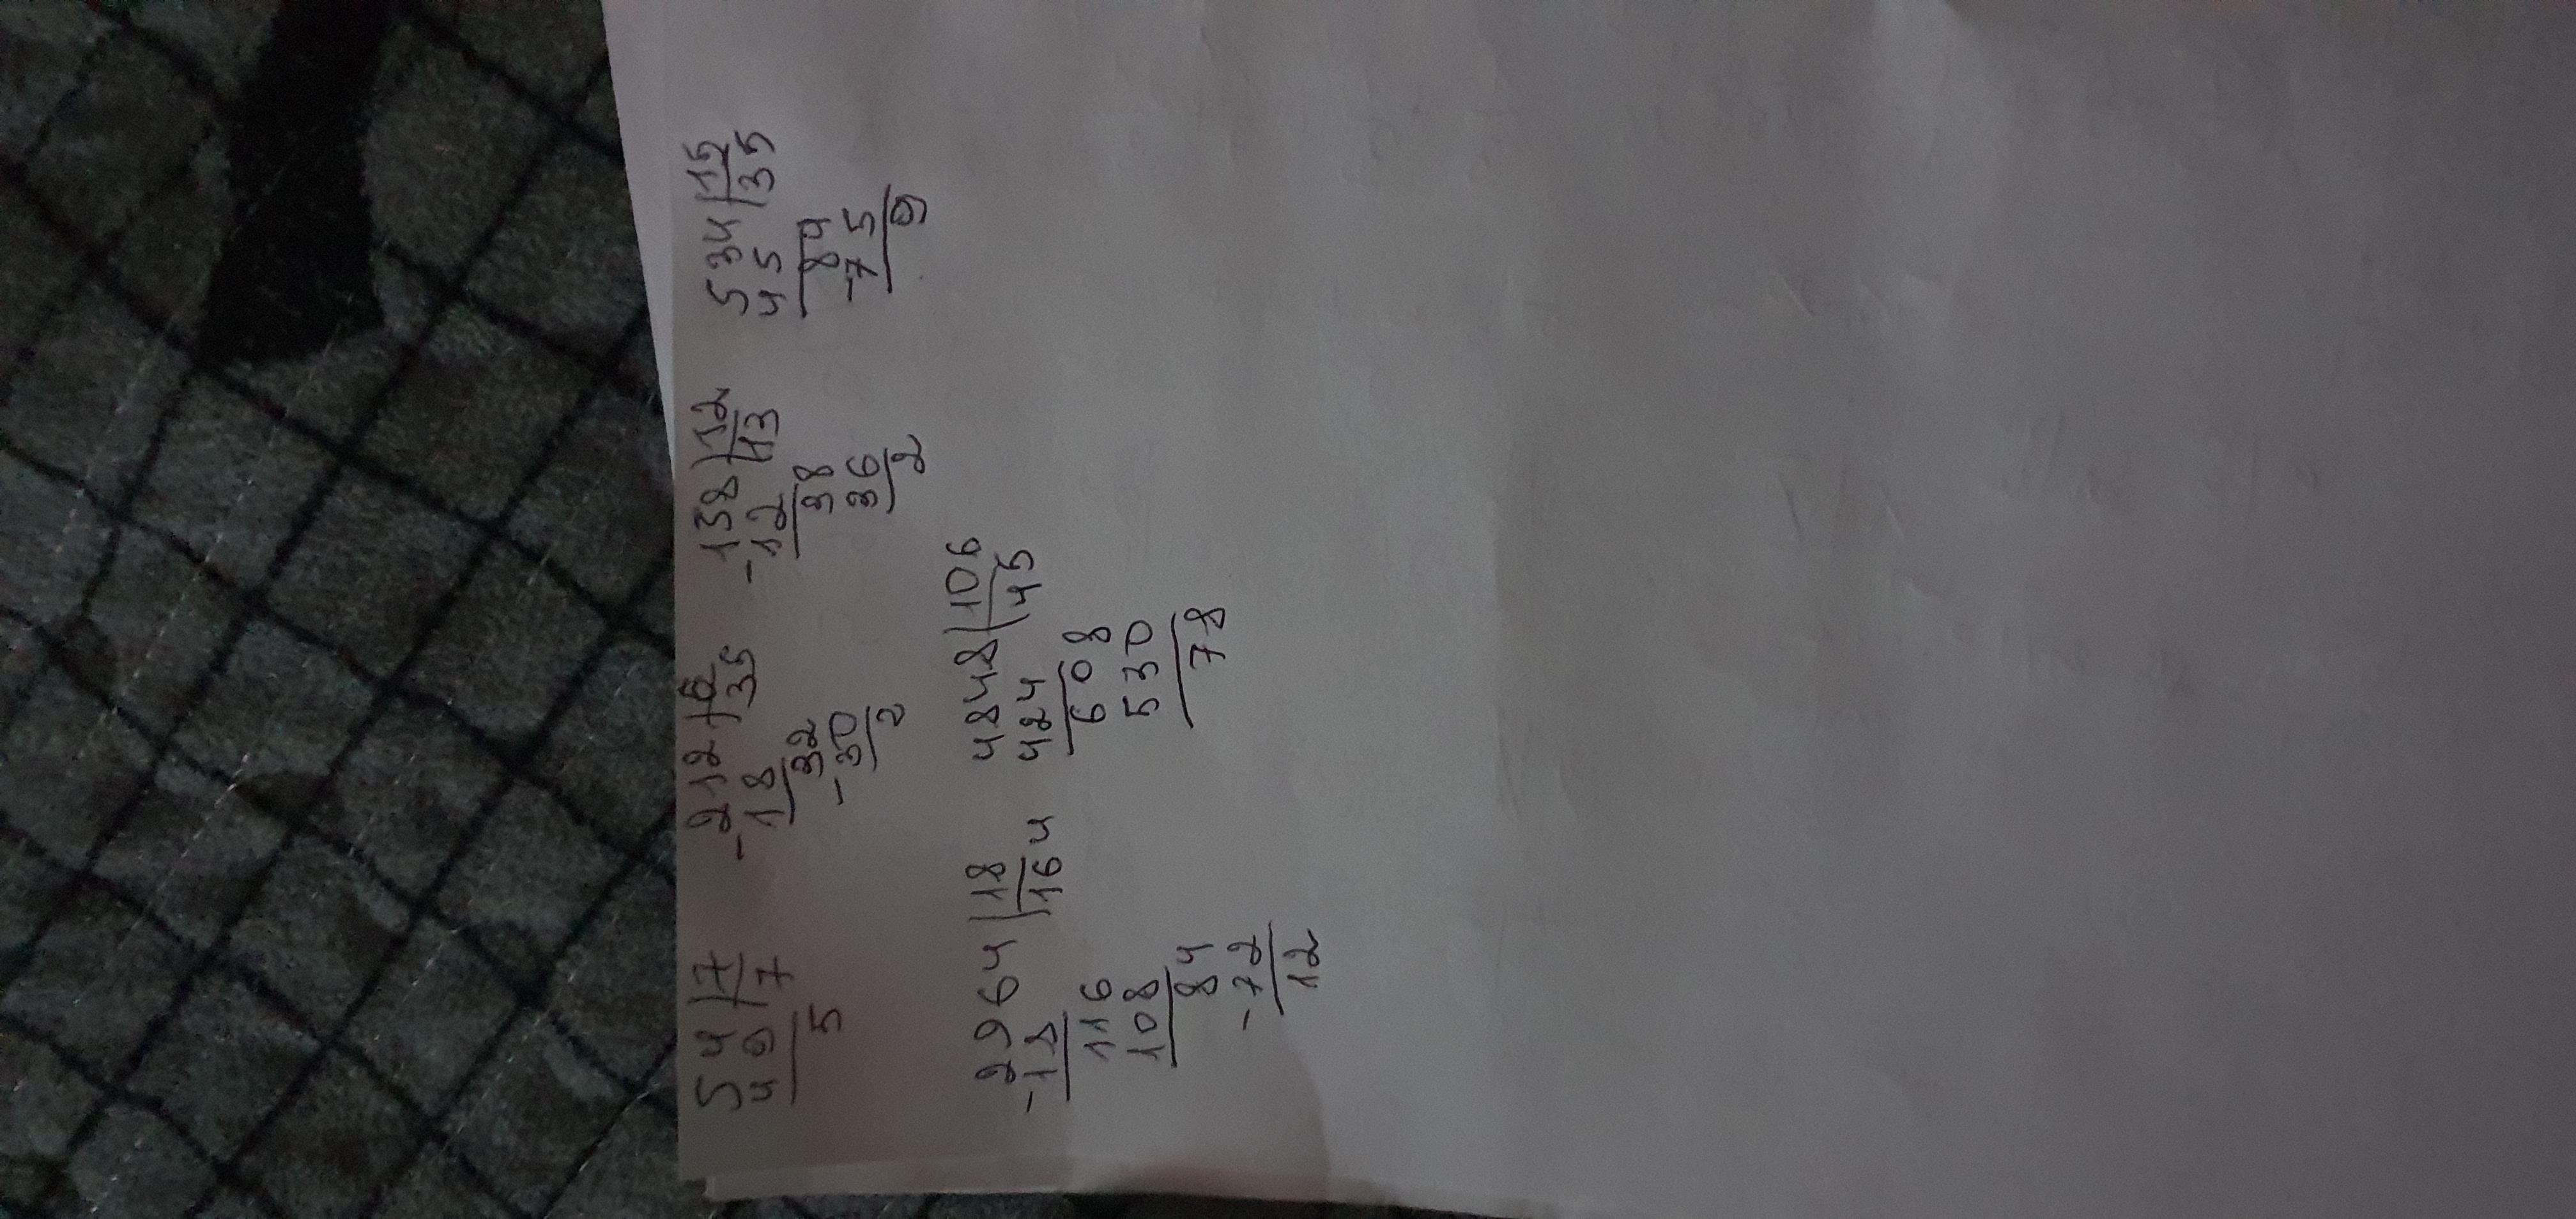 54 | 7 - 212 | 6 - 158 | 12 534 | 15
49 | 7 18 | 35 12 | 13 45 | 35
5 32 38 84
- 30 36 - 75
2 2 9
- 2964 | 18 4848 | 106
18 | 164 424 | 45
116 608
108 530
84 78
- 72
12